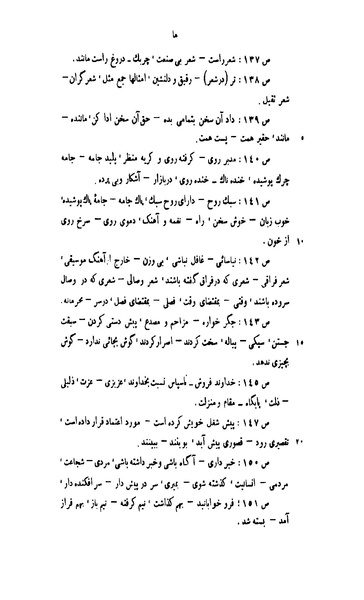 ها
ص ۱۳۷: شعر راست – شعر بی صنعت؛ چربك – دروغ راست مانند.
ص ۱۳۸: تر (درشعر) – رقیق و دلنشین؛ امثالها جمع مثل؛ شعر گران –
شعر ثقیل.
ص ۱۳۹: داد آن سخن بتمامی بده – حق آن سخن ادا کن؛ ماننده –
۵ مانند؛ حقیر همت – پست همت.
ص ۱۴۰: مدبر روی – گرفته روی و کریه منظر؛ پلید جامه – جامه
چرك پوشیده؛ خنده ناك – خنده روی؛ دربازار – آشکار وبی پرده.
ص ۱۴۱: سبك روح – دارای روح سبك؛ پاك جامه – جامهٔ پاك پوشیده؛
خوب زبان – خوش سخن؛ راه – نغمه و آهنگ؛ دموی روی – سرخ روی
۱۰ از خون.
ص ۱۴۲: نیاسائی – غافل نباشی؛ بی وزن – خارج از آهنگ موسیقی؛
شعر فراقی – شعری که درفراق گفته باشند؛ شعر وصالی – شعری که در وصال
سروده باشند؛ وقتی – بمقتضای وقت؛ فصلی – بمقتضای فصل؛ درسر – محرمانه.
ص ۱۴۳: جگر خواره – مزاحم و مصدع؛ پیش دستی کردن – سبقت
۱۵ جستن؛ سیکی – پیاله؛ سخت کردند – اصرار کردند؛ گوش بجائی ندارد – گوش
بچیزی ندهد.
ص ۱۴۵: خداوند فروش – ناسپاس نسبت بخداوند؛ عزیزی – عزت؛ ذلیلی
– ذلت؛ پایگاه – مقام و منزلت.
ص ۱۴۷: پیش شغل خویش کرده است – مورد اعتماد قرار داده است؛
۲۰ تقصیری رود – قصوری پیش آید؛ بوینند – ببینند.
ص ۱۵۰: خبر داری – آگاه باشی وخبر داشته باشی؛ مردی – شجاعت؛
مردمی – انسانیت؛ گذشته شوی – بمیری؛ سر در پیش دار – سر افکنده دار؛
ص ۱۵۱: فرو خوابانید – بهم گذاشت؛ نیم گرفته – نیم باز؛ بهم فراز
آمد – بسته شد.